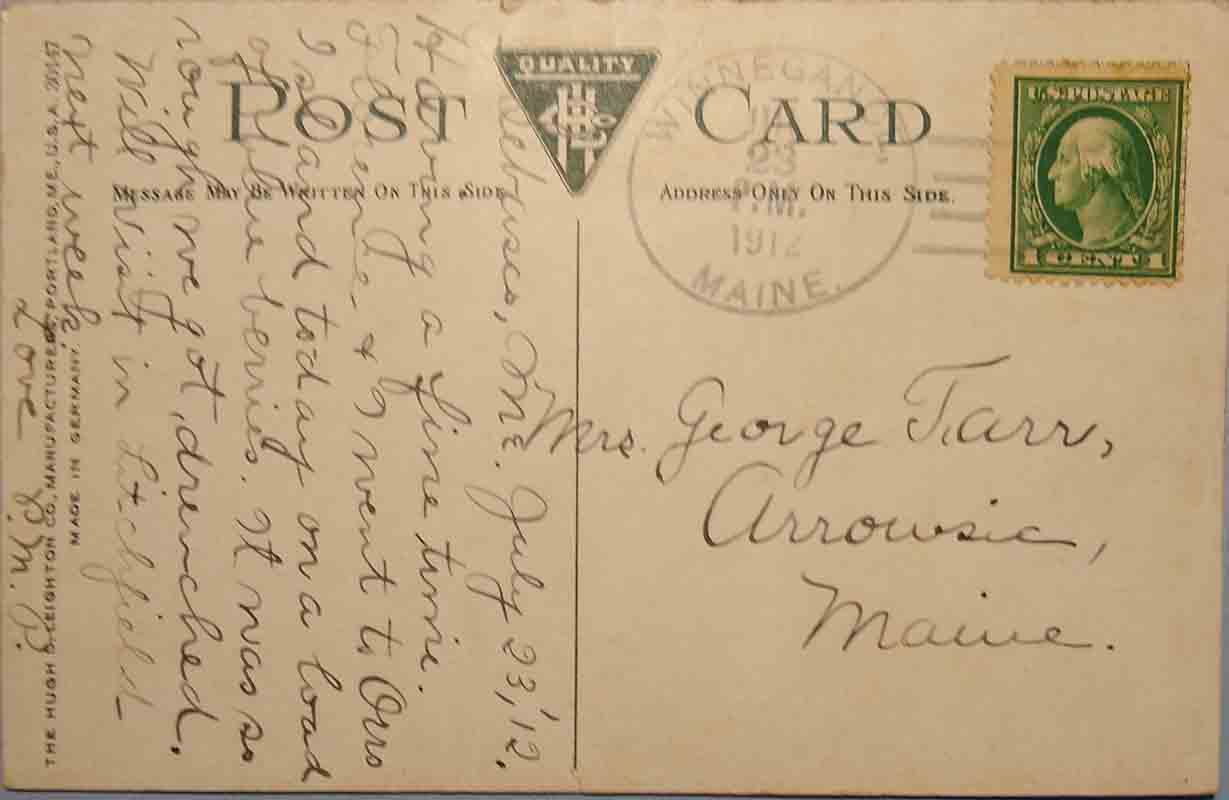 POST CARD
QUALITY
MESSAGE MAY BE WRITTEN ON THIS SIDE
ADDRESS ONLY ON THIS SIDE.
23
P.M.
1912
MAINE.
U.S. POSTAGE
1 CENT 1
Mrs. George Tarr,
Arrowsic,
Maine.
Me. July 23, '12.
Having a fine time.
& I went to Orrs
Island today on a load
of blue berries. It was so
rough we got drenched.
Will visit in Litchfield
next week.
Love
THE HUGH C. LEIGHTON CO., MANUFACTURERS, PORTLAND, ME., U.S.A.
MADE IN GERMANY.